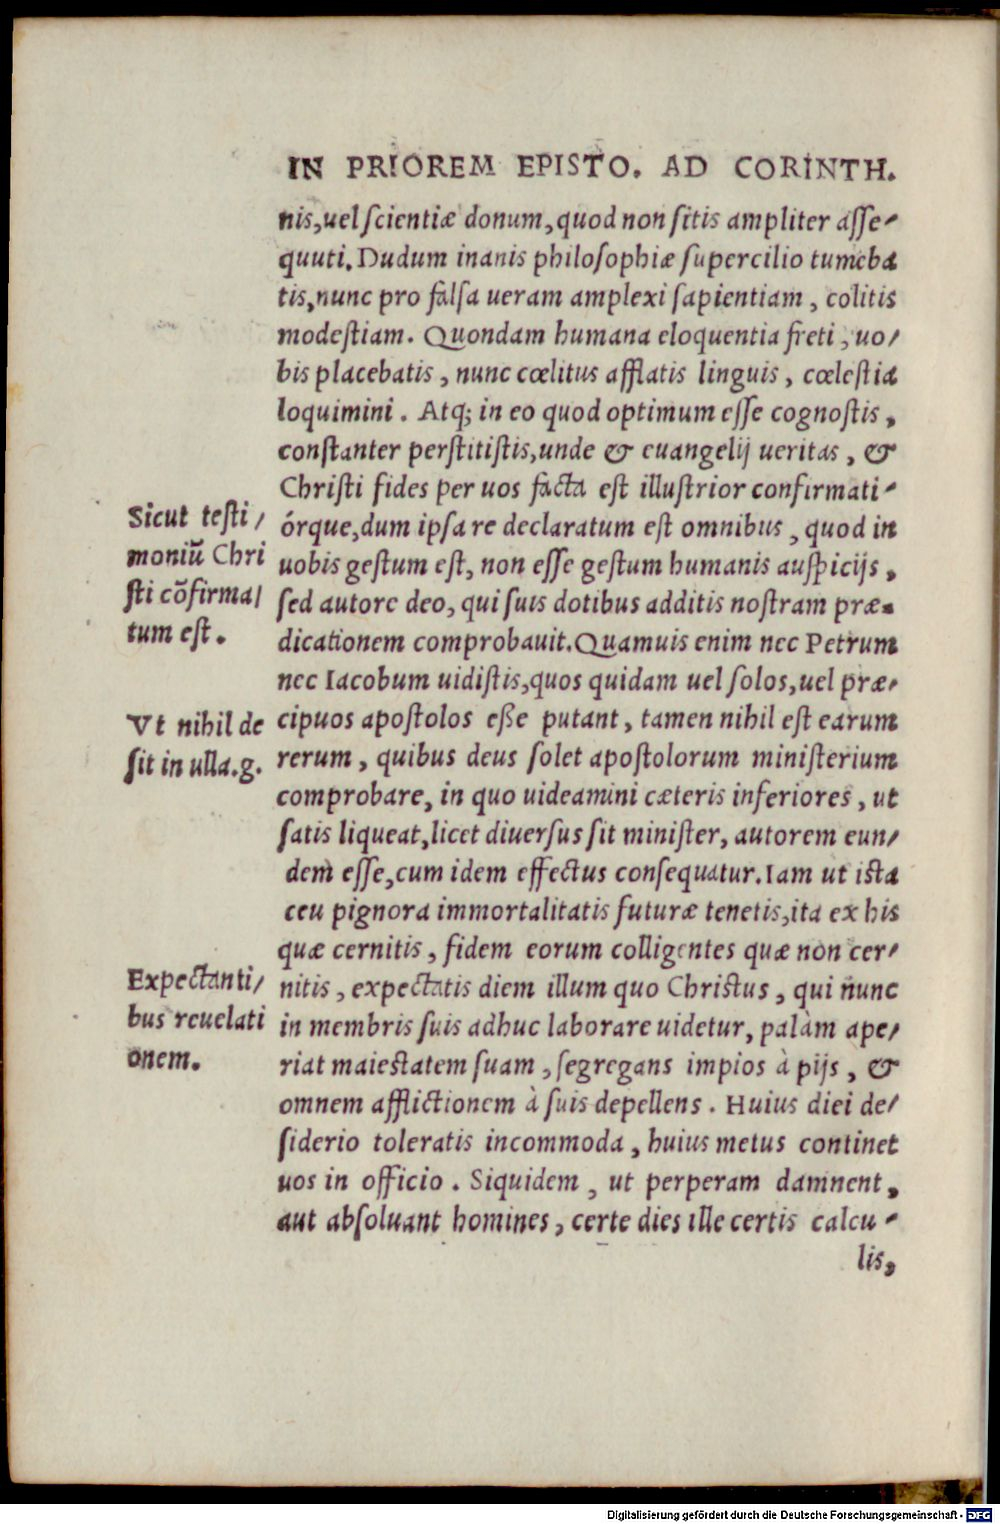 IN PRIOREM EPISTO. AD CORINTH.
nis,uel ſcientiæ donum,quod non ſitis ampliter aſſe⸗
quuti.Dudum inanis philoſophiæ ſupercilio tumeba
tis,nunc pro falſa ueram amplexi ſapientiam, colitis
modeſtiam. Quondam humana eloquentia freti, uo⸗
bis placebatis, nunc cœlitus afflatis linguis, cœleſtia
loquimini. Atq; in eo quod optimum eſſe cognoſtis,
conſtanter perſtitiſtis,unde & euangelij ueritas, &
Chriſti fides per uos facta eſt illuſtrior confirmati⸗
órque,dum ipſa re declaratum eſt omnibus, quod in
uobis geſtum eſt, non eſſe geſtum humanis auſpicijs,
ſed autore deo, qui ſuis dotibus additis noſtram præ⸗
dicationem comprobauit.Quamuis enim nec Petrum
nec Iacobum uidiſtis,quos quidam uel ſolos,uel præ⸗
cipuos apoſtolos eße putant, tamen nihil eſt earum
rerum, quibus deus ſolet apoſtolorum miniſterium
comprobare, in quo uideamini cæteris inferiores, ut
ſatis liqueat,licet diuerſus ſit miniſter, autorem eun⸗
dem eſſe,cum idem effectus conſequatur.Iam ut iſta
ceu pignora immortalitatis futuræ tenetis,ita ex his
quæ cernitis, fidem eorum colligentes quæ non cer⸗
nitis, expectatis diem illum quo Chriſtus, qui nunc
in membris ſuis adhuc laborare uidetur, palàm ape⸗
riat maieſtatem ſuam, ſegregans impios à pijs, &
omnem afflictionem à ſuis depellens. Huius diei de⸗
ſiderio toleratis incommoda, huius metus continet
uos in officio. Siquidem, ut perperam damnent,
aut abſoluant homines, certe dies ille certis calcu⸗
lis,
Sicut teſti⸗
moniũ Chri
ſti cõfirma⸗
tum eſt.
Vt nihil de
ſit in ulla.g.
Expectanti⸗
bus reuelati
onem.
Digitalisierung gefördert durch die Deutsche Forschungsgemeinschaft - DFG